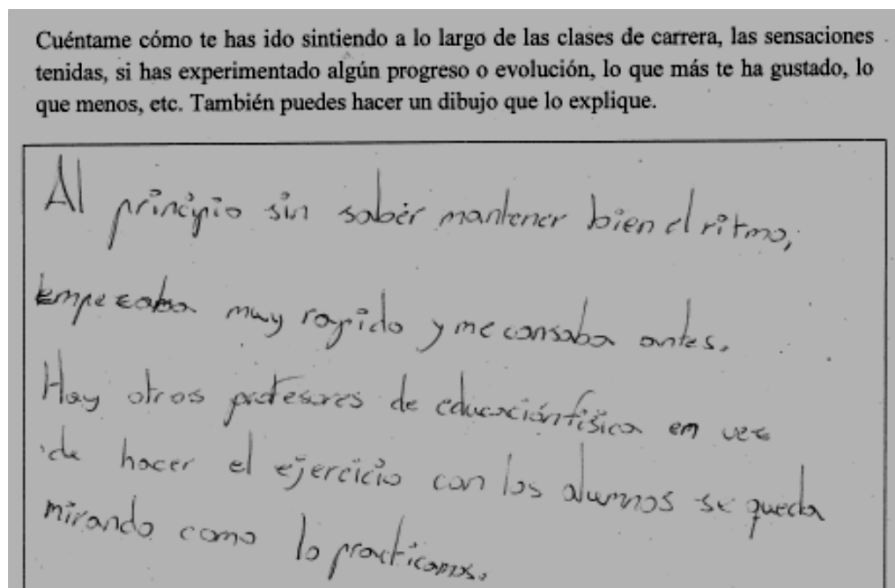 Cuéntame cómo te has ido sintiendo a lo largo de las clases de carrera, las sensaciones
tenidas, si has experimentado algún progreso o evolución, lo que más te ha gustado, lo
que menos, etc. También puedes hacer un dibujo que lo explique.
Al principio sin saber mantener bien el ritmo,
empezaba muy rapido y me cansaba antes.
Hay otros profesores de educación física en vez
de hacer el ejercicio con los alumnos se queda
mirando como lo practicamos.